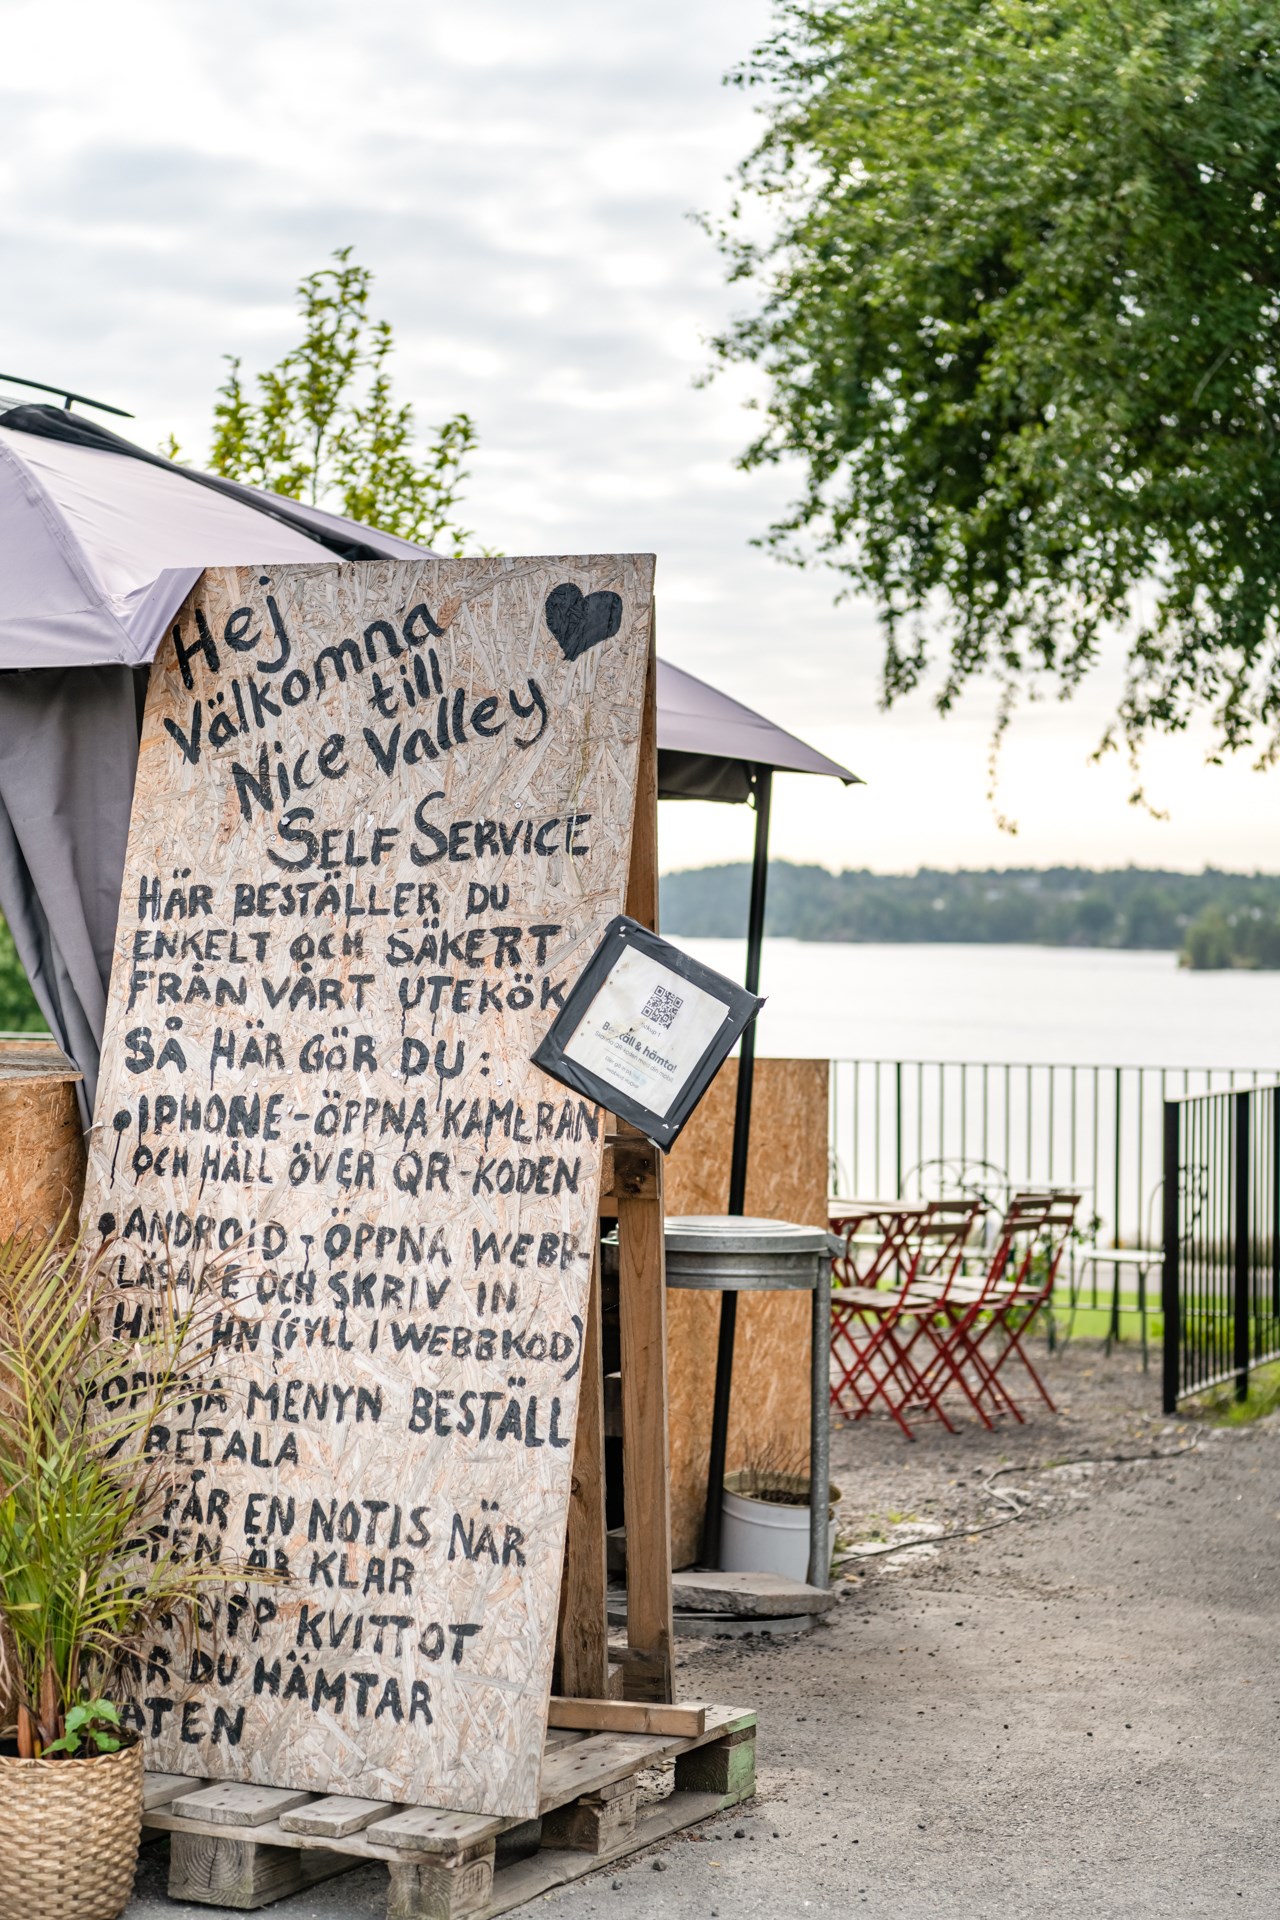 Hej
Välkomna
till
Nice Valley
SELF SERVICE
HÄR BESTÄLLER DU
ENKELT OCH SÄKERT
FRÅN VÅRT UTEKÖK
SÅ HÄR GÖR DU:
• IPHONE - ÖPPNA KAMERAN
OCH HÅLL ÖVER QR-KODEN
• ANDROID - ÖPPNA WEBB-
LÄSARE OCH SKRIV IN
(FYLL I WEBBKOD)
ÖPPNA MENYN BESTÄLL
BETALA
FÅR EN NOTIS NÄR
ÄR KLAR
UPP KVITTOT
DU HÄMTAR
Beställ & hämta!